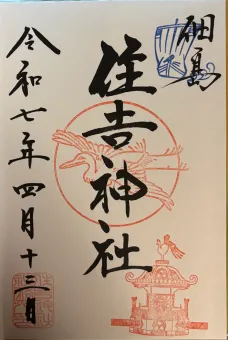 佃島
住吉神社
令和七年四月十三日